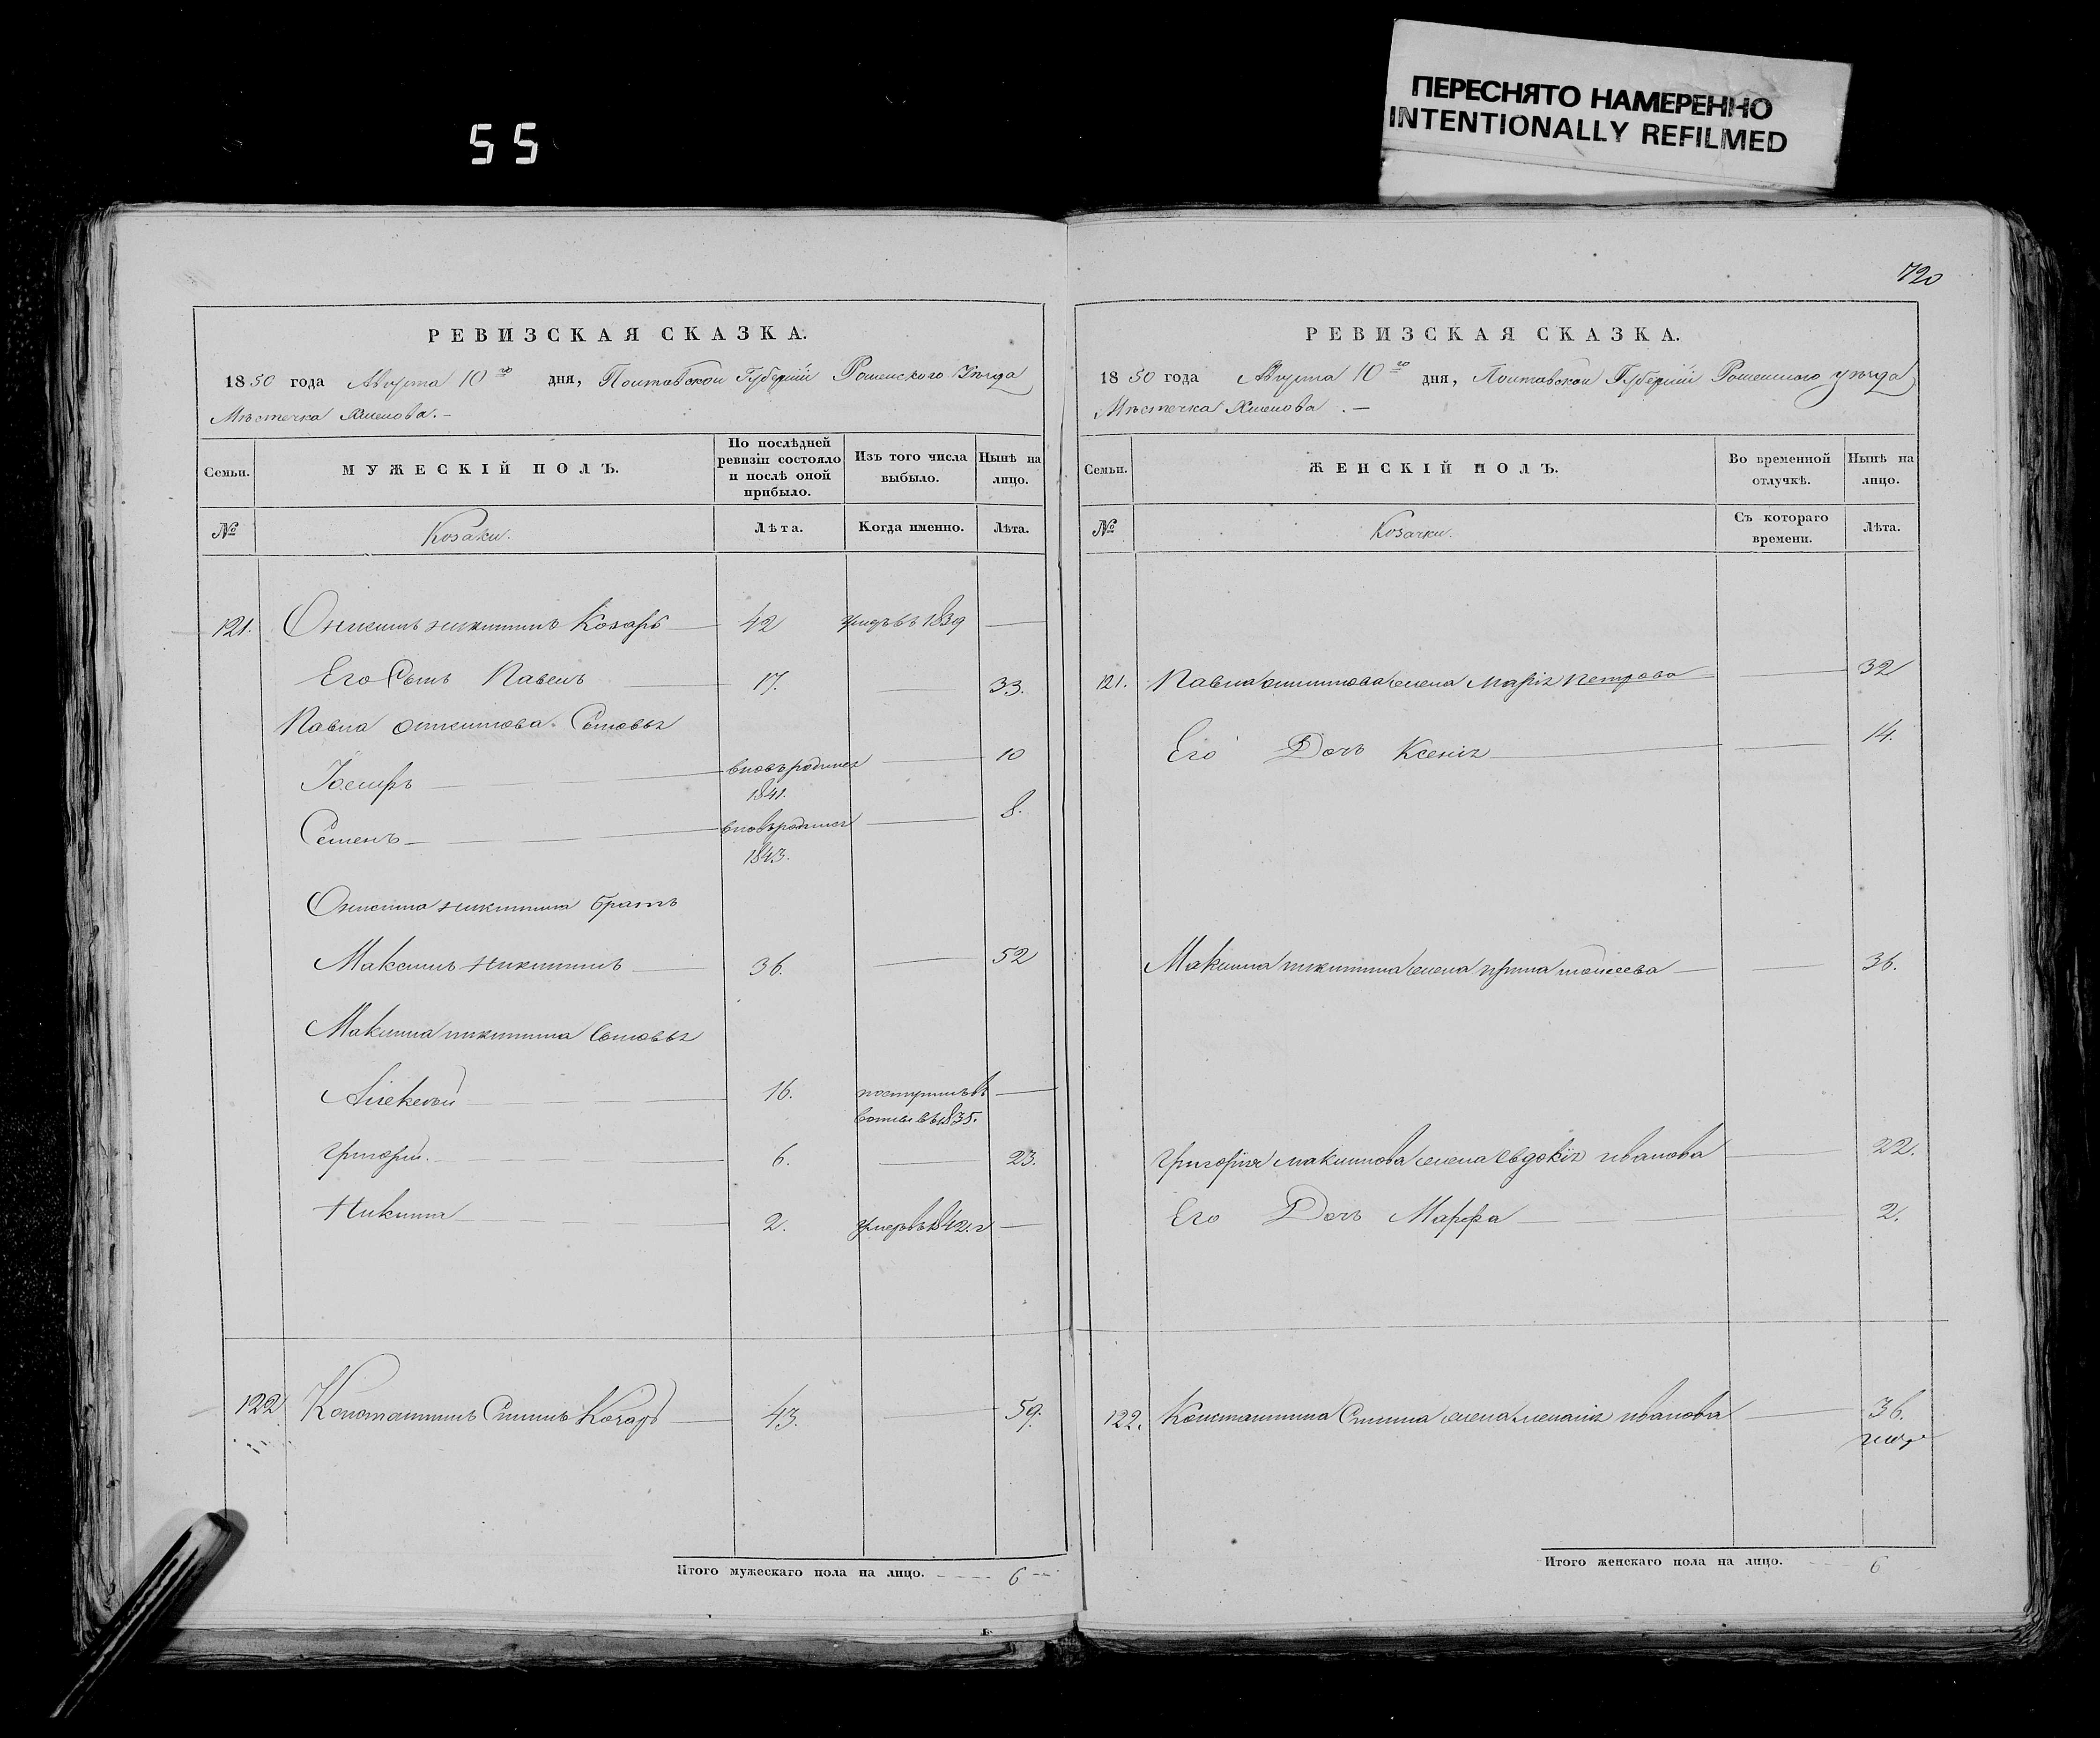 55
ПЕРЕСНЯТО НАМЕРЕННО
INTENTIONALLY REFILMED
РЕВИЗСКАЯ СКАЗКА.
1850 года Августа 10го дня, Полтавской Губерніи Роменского Уѣзда
Мѣстечка Хмелова.
Семьи.
МУЖЕСКІЙ ПОЛЪ.
По послѣдней ревизіи состояло и послѣ оной прибыло.
Изъ того числа выбыло.
Нынѣ на лицо.
№
Козаки.
Лѣта.
Когда именно.
Лѣта.
121. Онисимъ Никитинъ Козаръ 42 умеръ въ 1839
Его Сынъ Павелъ 17. 33.
Павла Онисимова Сыновья
Іосифъ вновь родился 10
1841.
Семенъ вновь родился 8.
1843.
Онисима Никитина братъ
Максимъ Никитинъ 36. 52
Максима Никитина Сыновья
Алексѣй 16. поступилъ въ
въ 1835.
Григорій. 6. 23.
Никита 2. умеръ въ 1842. г
122 Константинъ Козаръ 43. 59.
Итого мужескаго пола на лицо. 6
720
РЕВИЗСКАЯ СКАЗКА.
1850 года Августа 10го дня, Полтавской Губерніи Роменского уѣзда
Мѣстечка Хмелова.
Семьи.
ЖЕНСКІЙ ПОЛЪ.
Во временной отлучкѣ.
Нынѣ на лицо.
№
Козачки.
Съ котораго времени.
Лѣта.
121. Павла Онисимова жена Марія Петрова 32
Его Дочь Ксенія 14.
Максима Никитина жена Ирина Моисеева 36.
Григорія Максимова жена Евдокія Иванова 22.
Его Дочь Марфа 2.
122. Константина жена Меланія Иванова 36.
Итого женскаго пола на лицо. 6